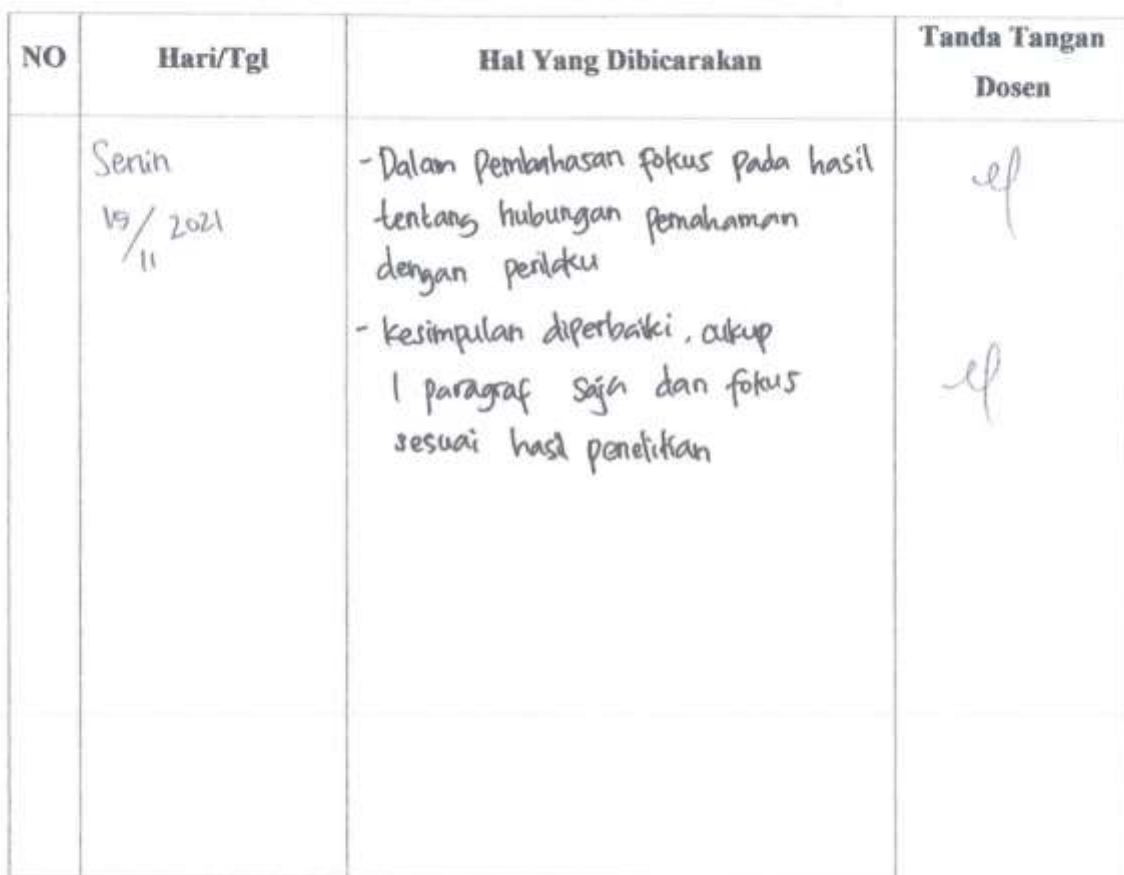 NO
Hari/Tgl
Hal Yang Dibicarakan
Tanda Tangan
Dosen
Senin
15/11 2021
- Dalam Pembahasan fokus pada hasil
tentang hubungan pemahaman
dengan perilaku
- Kesimpulan diperbaiki, cukup
1 paragraf saja dan fokus
sesuai hasil penelitian